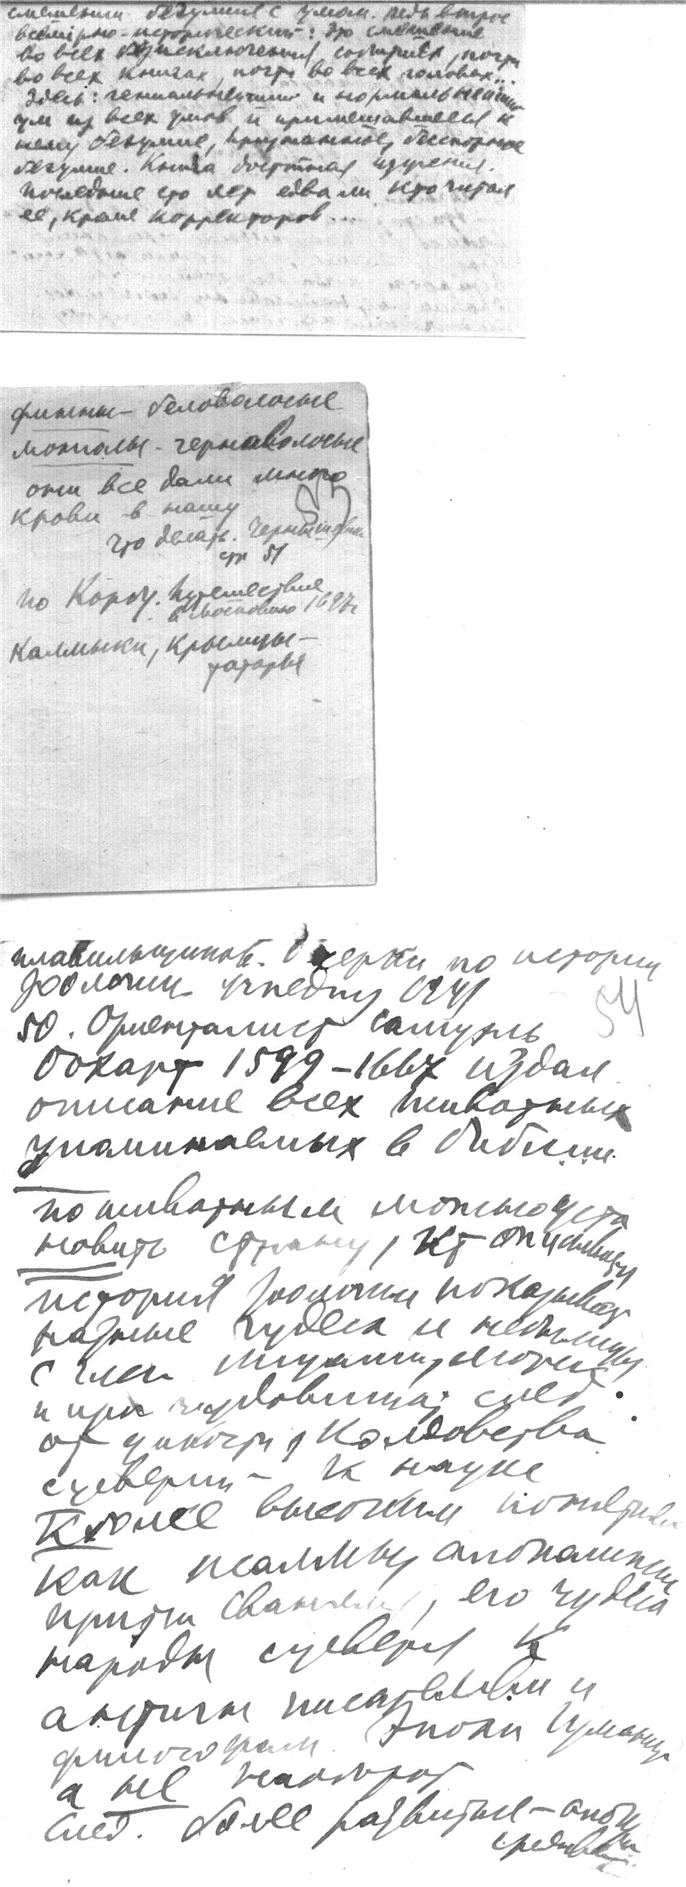 смешении безумия с умом. Ведь вопрос
всемирно-исторический: это смешение
во всех без исключения событиях, почти
во всех книгах, почти во всех головах...
Здесь: гениальнейший и нормальнейший
ум из всех умов и примешавшееся к
нему безумие, признанное, бесспорное
безумие. Книга достойная изучения.
Последние сто лет едва ли кто читал
ее, кроме корректоров...
финны - беловолосые
монголы - черноволосые
они все дали много
крови в нашу
53
Что делать. Чернышевский
стр 51
по Корбу. Путешествие
в Московию 1697
Калмыки, Крымцы -
татары
Плавильщиков. Очерки по истории
Зоологии учпедгиз 1941
54
50. Ориенталист Самуэль
Бохарт 1599-1667 издал
описание всех животных
упоминаемых в библии
по животным можно уста
новить страну, кт описывает
история зоологии показывает
разные чудеса и небылицы
с
и при чудовищах; след.
от дикости, колдовства
суеверия - к науке
К более высоким понятиям
как псалмы, апокалипсис
притчи, его чудеса
народн суеверия к
античн писателям и
философам Эпохи
а не наоборот
след. более развитые -